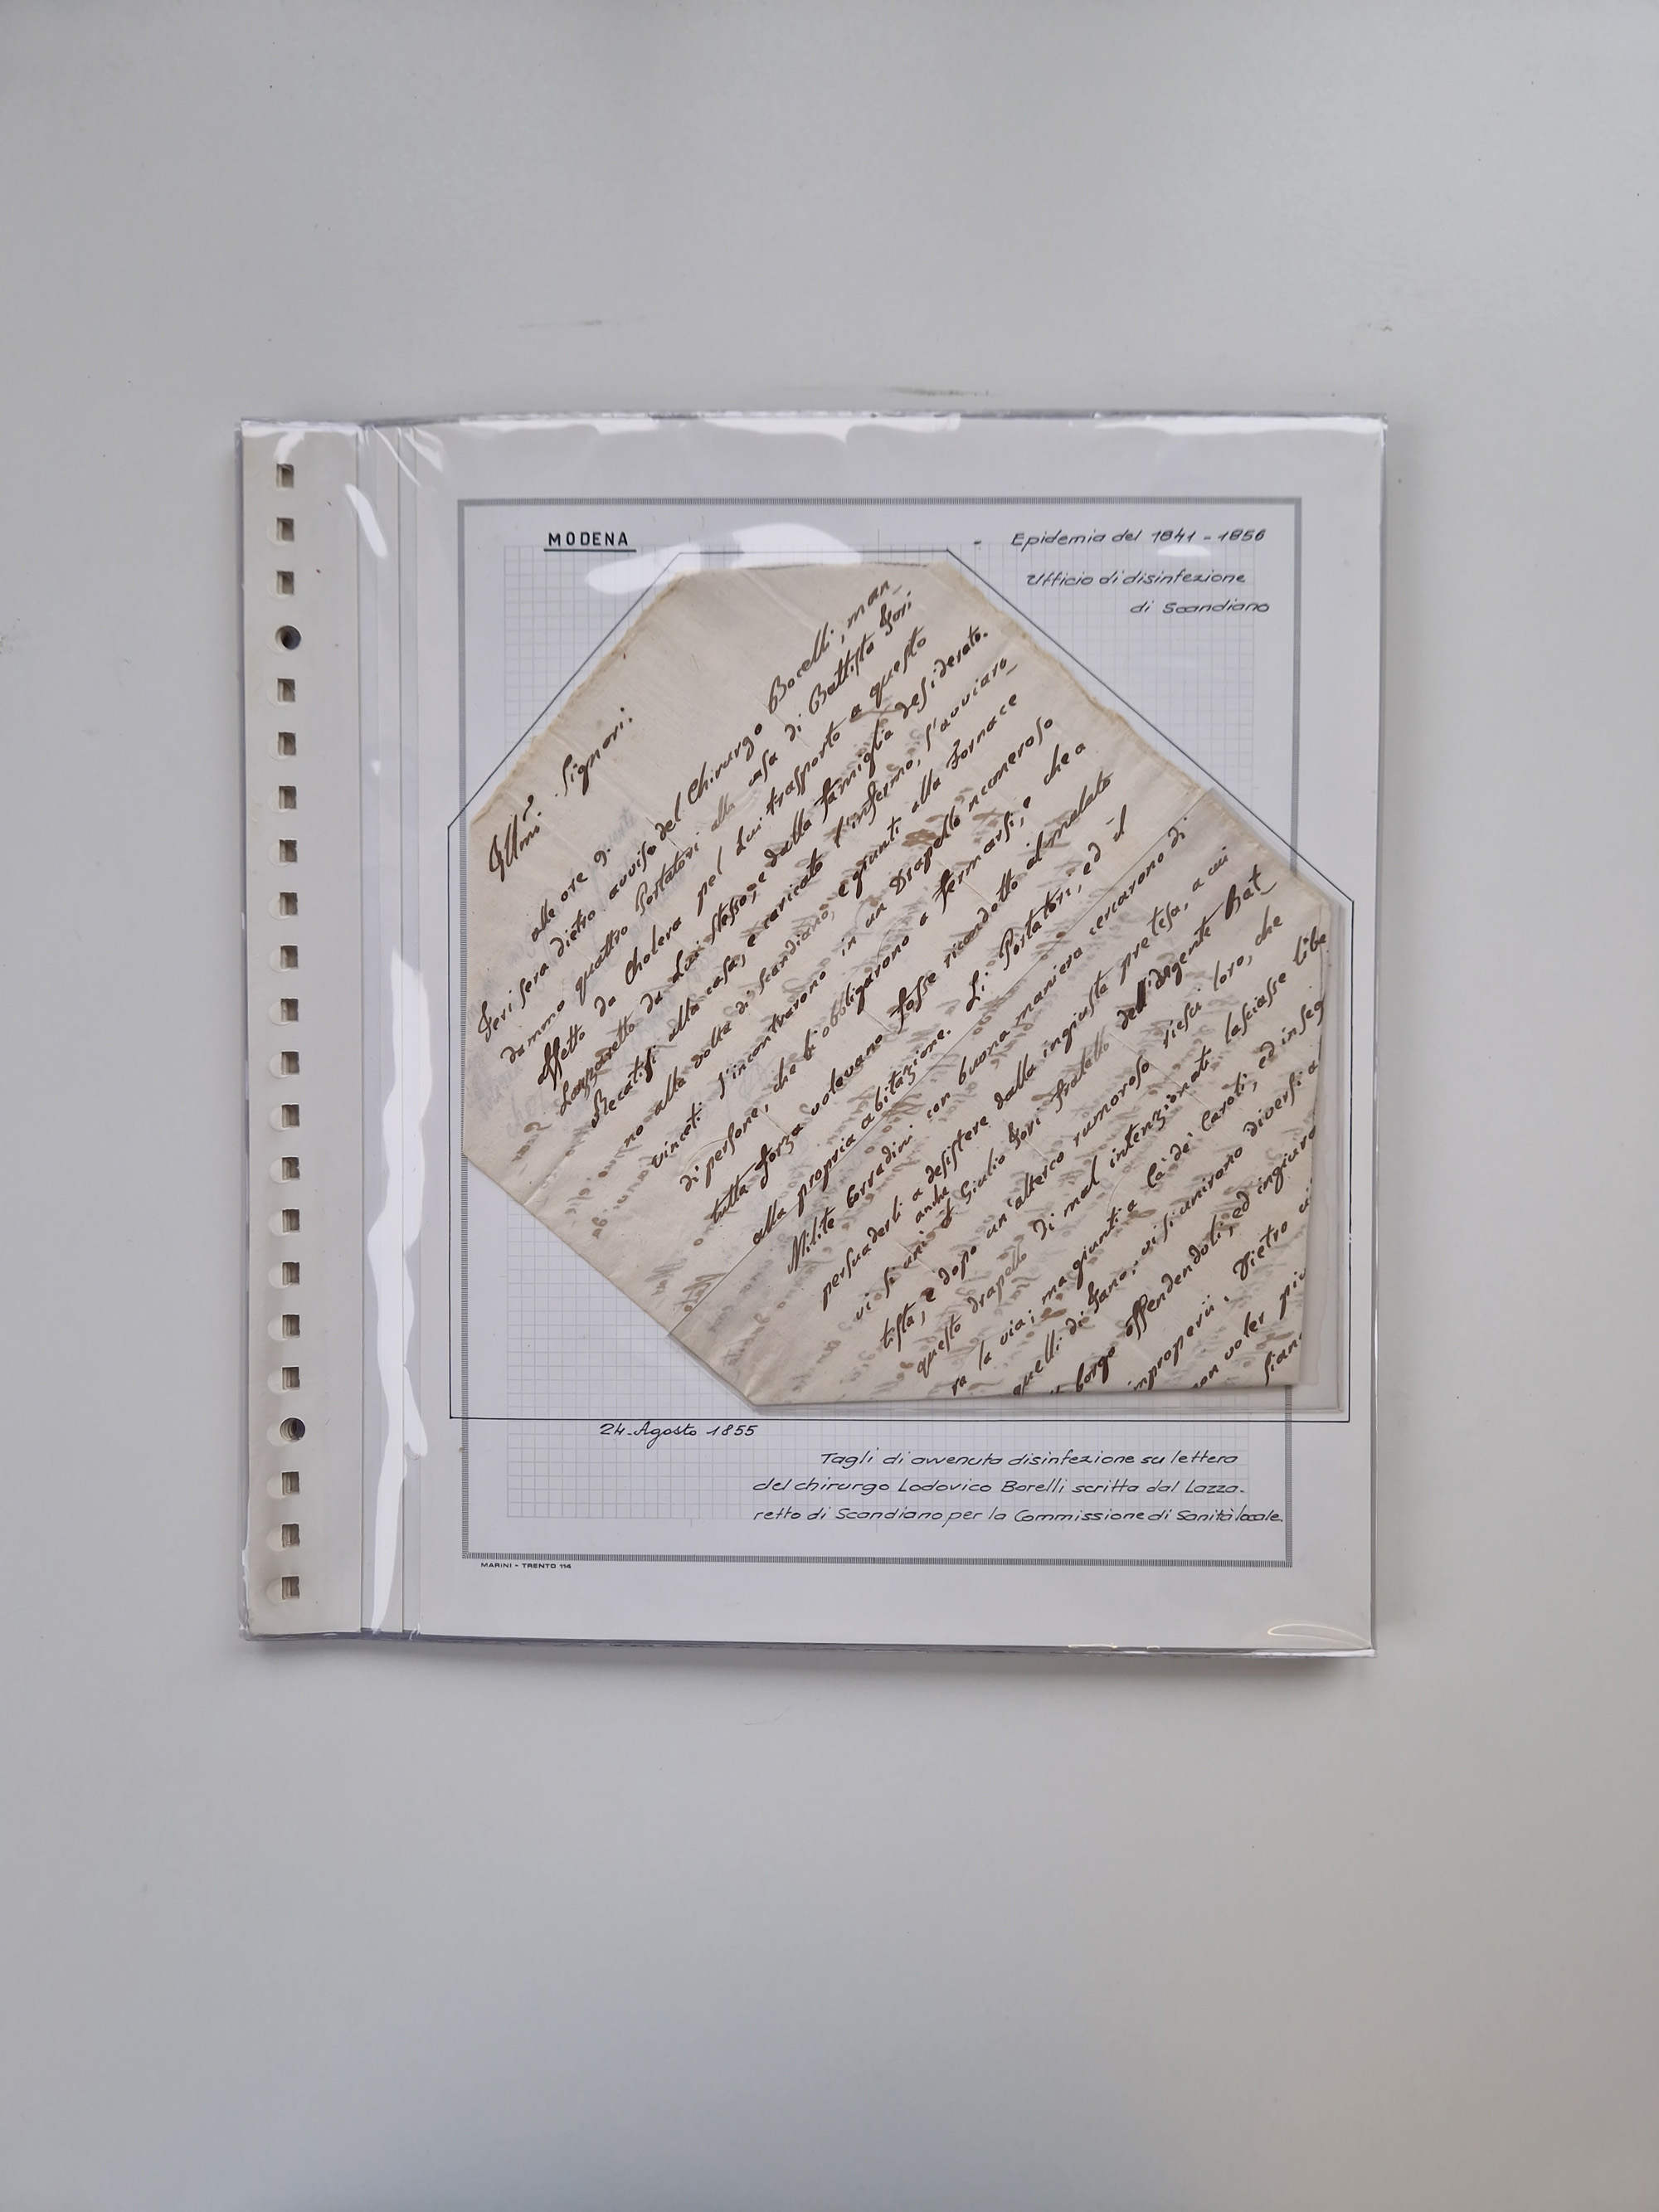 MODENA
- Epidemia del 1841 - 1856
Ufficio di disinfezione
di Scandiano
Illmi. Signori.
alle ore 9.
Jeri sera dietro avviso del Chirurgo Borelli, man_
dammo quattro Portatori alla casa di Battista Fori
affetto da Cholera pel di Lui trasporto a questo
Lazzaretto da Lui stesso, e dalla famiglia desiderato.
Recatisi alla casa, e caricato l'infermo, s'avviaro_
no alla volta di Scandiano, e giunti alla Fornace
s'incontrarono in un Drapello numeroso
di persone, che li obbligarono a fermarsi, e che a
tutta forza volevano fosse ricondotto il malato
alla propria abitazione. Li Portatori, ed il
Milite Corradini con buona maniera cercarono di
persuaderli a desistere dalla ingiusta pretesa, a cui
vi si unì anche Giulio Fori fratello dell'indigente Bat_
tista, e dopo un'alterco rumoroso riescì loro, che
questo drapello di mal intenzionati lasciasse libe
ra la via; ma giunti a Cà de' Caroti, ed inseg
quelli di Fano, vi si unirono diversi a
borgo offendendoli, ed ingiuria
improperii, Pietro
non voler più
24-Agosto 1855
Tagli di avvenuta disinfezione su lettera
del chirurgo Lodovico Borelli scritta dal Lazza-
retto di Scandiano per la Commissione di Sanità locale.
MARINI - TRENTO 114